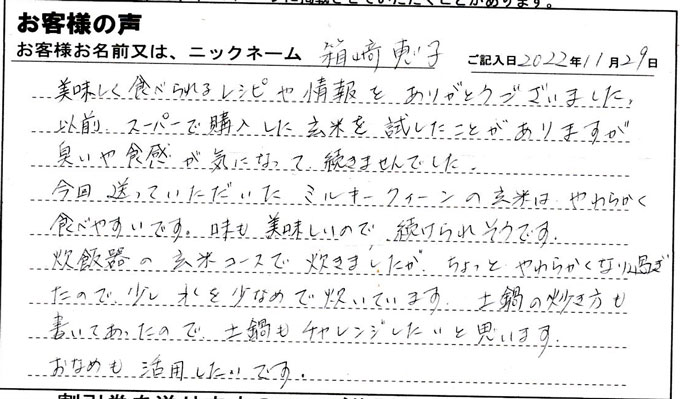 に掲載させていただくことがあります。
お客様の声
お客様お名前又は、ニックネーム 箱崎 恵子 ご記入日2022年11月29日
美味しく食べられるレシピや情報をありがとうございました。
以前、スーパーで購入した玄米を試したことがありますが
臭いや食感が気になって続きませんでした。
今回送っていただいたミルキークィーンの玄米はやわらかく
食べやすいです。味も美味しいので続けられそうです。
炊飯器の玄米コースで炊きましたが、ちょっとやわらかくなり過ぎ
たので、少し水を少なめで炊いています。土鍋の炊き方も
書いてあったので、土鍋もチャレンジしたいと思います。
おなめも活用したいです。